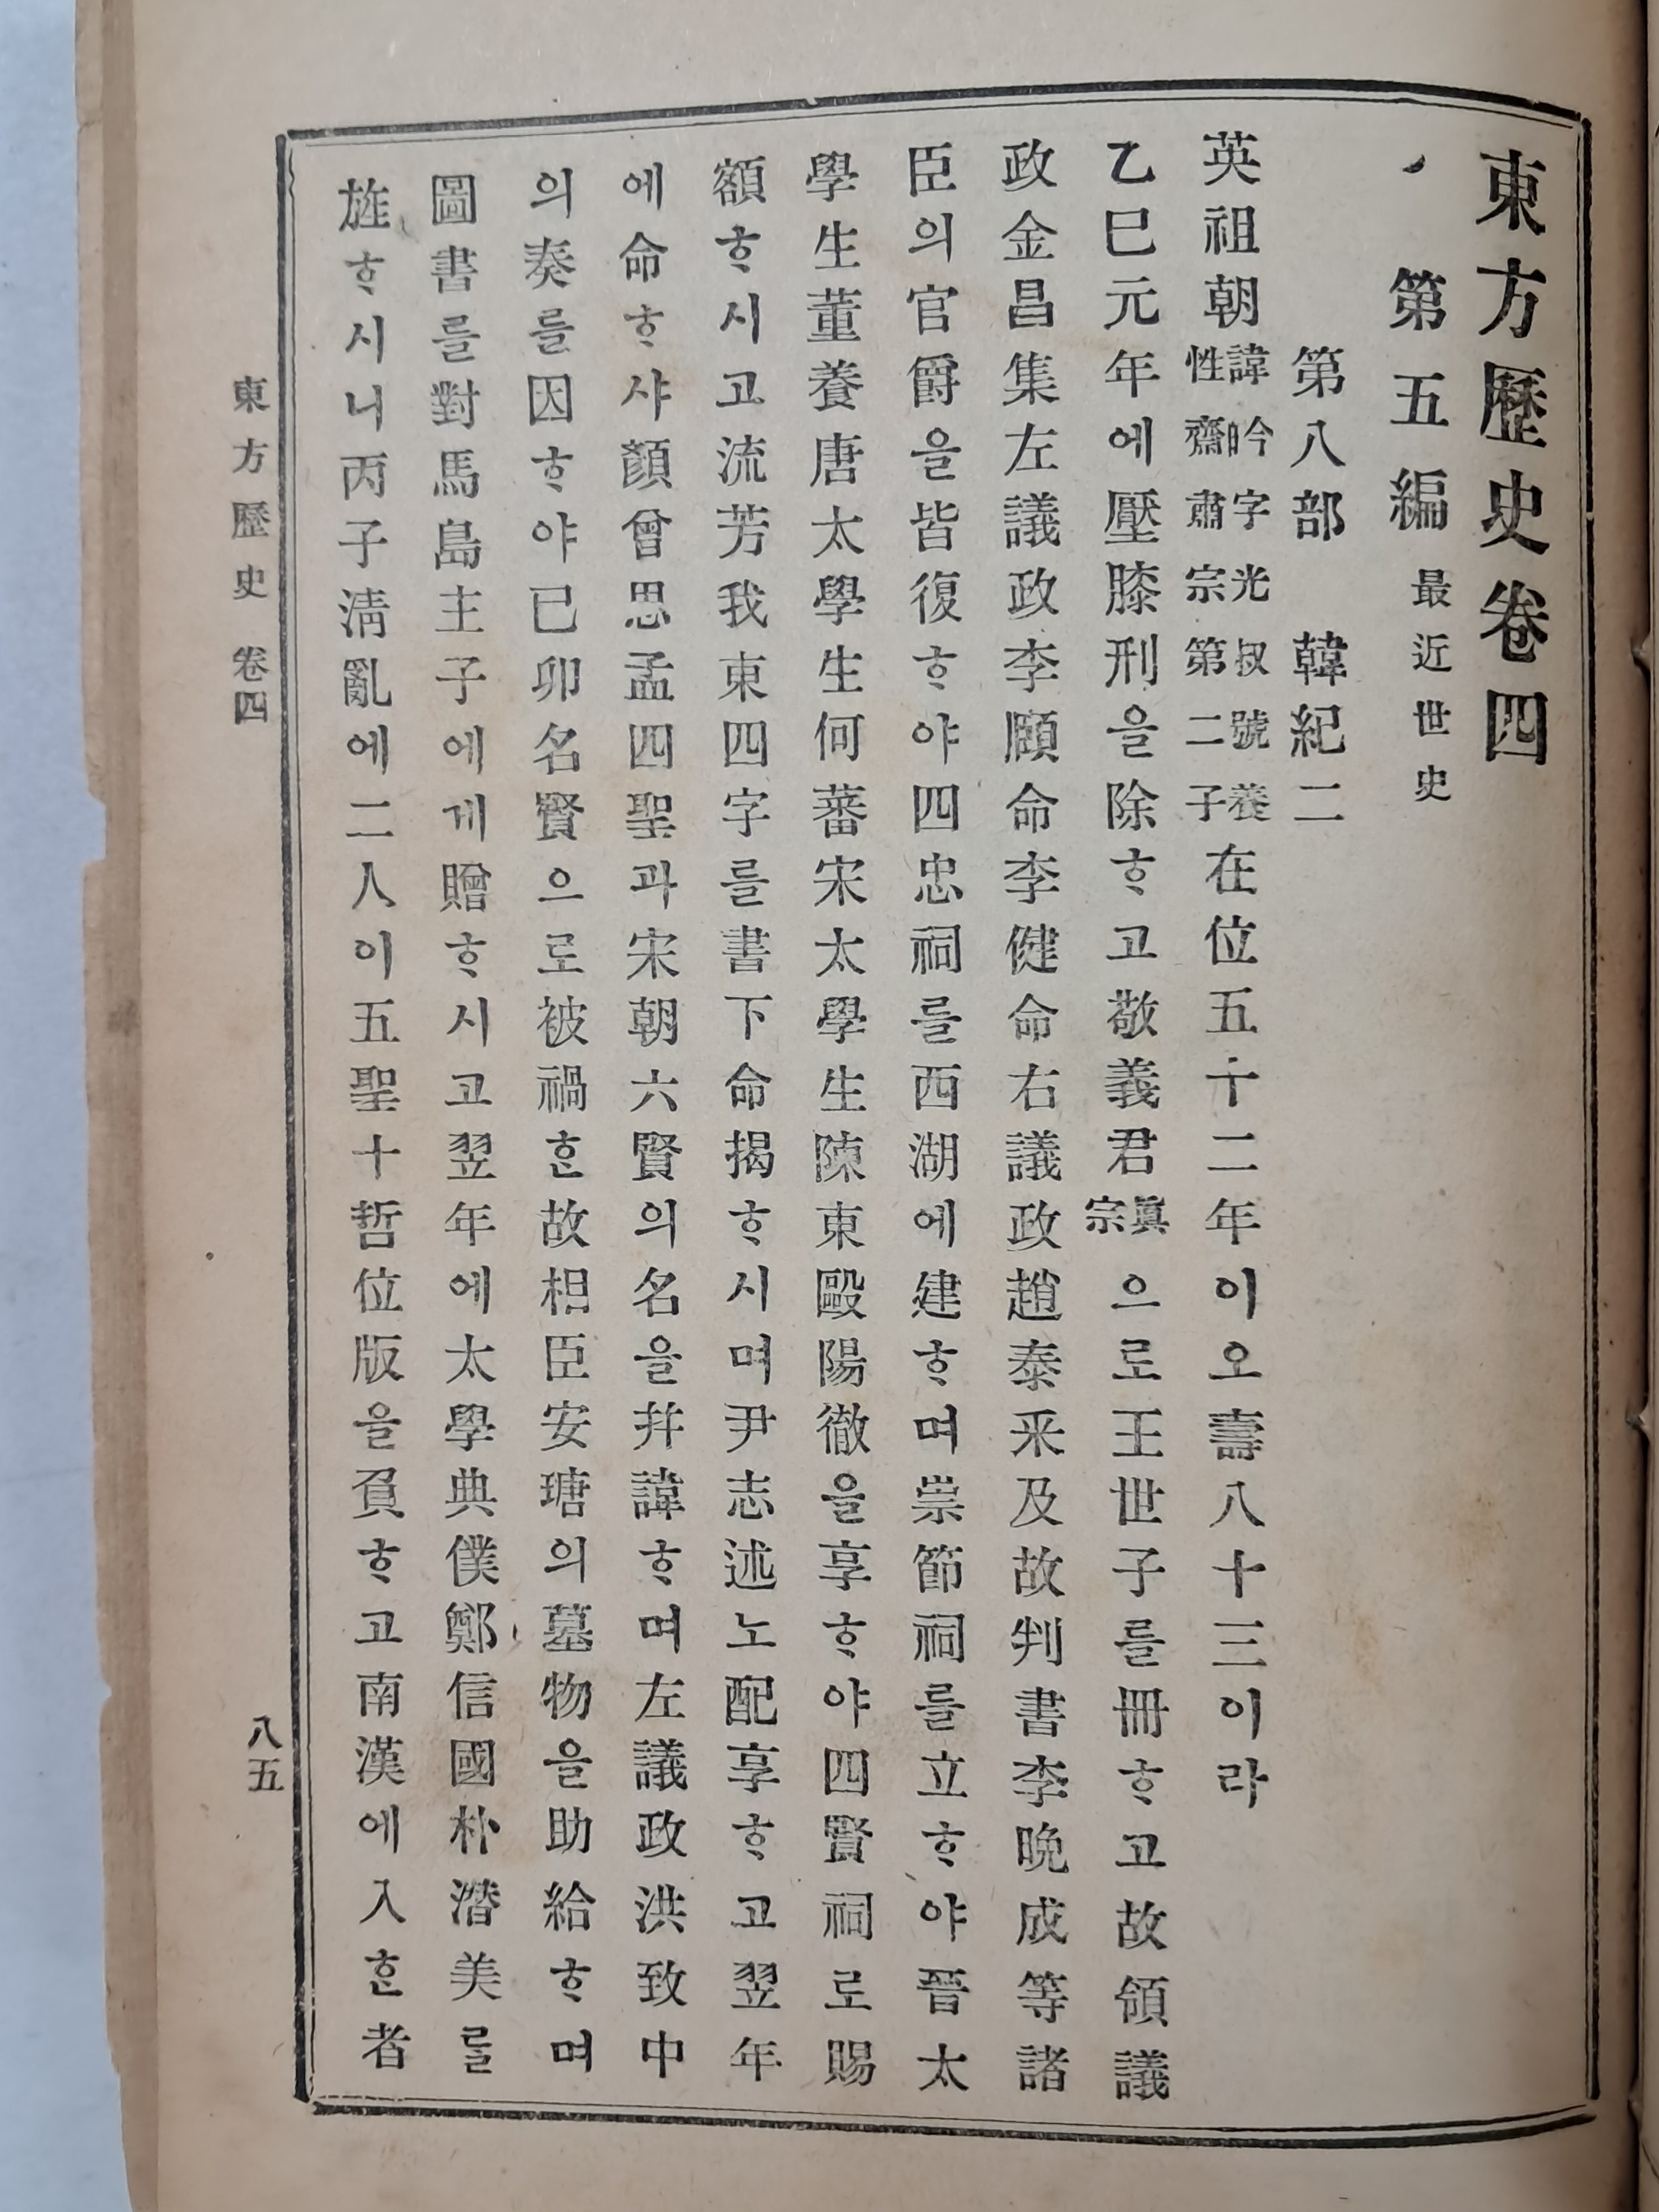 東方歷史卷四
第五編 最近世史
第八部 韓紀二
英祖朝 諱昑字光叔號養性齋肅宗第二子 在位五十二年이오壽八十三이라
乙巳元年에壓膝刑을除ᄒᆞ고敬義君 眞宗 으로王世子를冊ᄒᆞ고故領議
政金昌集左議政李頤命李健命右議政趙泰采及故判書李晩成等諸
臣의官爵을皆復ᄒᆞ야四忠祠를西湖에建ᄒᆞ며崇節祠를立ᄒᆞ야晉太
學生董養唐太學生何蕃宋太學生陳東毆陽徹을享ᄒᆞ야四賢祠로賜
額ᄒᆞ시고流芳我東四字를書下命揭ᄒᆞ시며尹志述노配享ᄒᆞ고翌年
에命ᄒᆞ샤顏曾思孟四聖과宋朝六賢의名을幷諱ᄒᆞ며左議政洪致中
의奏를因ᄒᆞ야已卯名賢으로被禍ᄒᆞᆫ故相臣安瑭의墓物을助給ᄒᆞ며
圖書를對馬島主子에게贈ᄒᆞ시고翌年에太學典僕鄭信國朴潛美를
旌ᄒᆞ시니丙子淸亂에二人이五聖十哲位版을負ᄒᆞ고南漢에入ᄒᆞᆫ者
東方歷史 卷四
八五